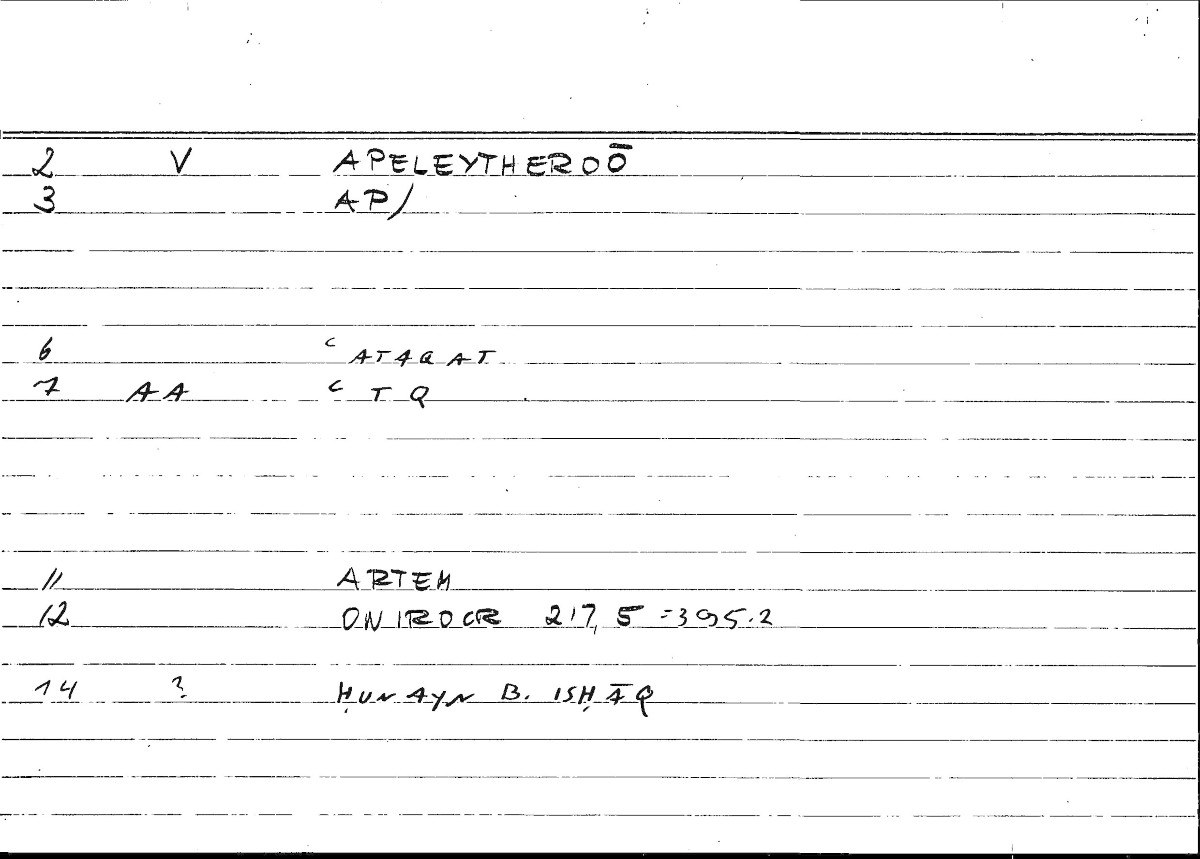 2 V APELEYTHEROŌ
3 AP/
6 ʿATAQAT
7 AA ʿTQ
11 ARTEM
12 ONIROCR 217,5=395.2
14 ? ḤUNAYN B. ISḤĀQ